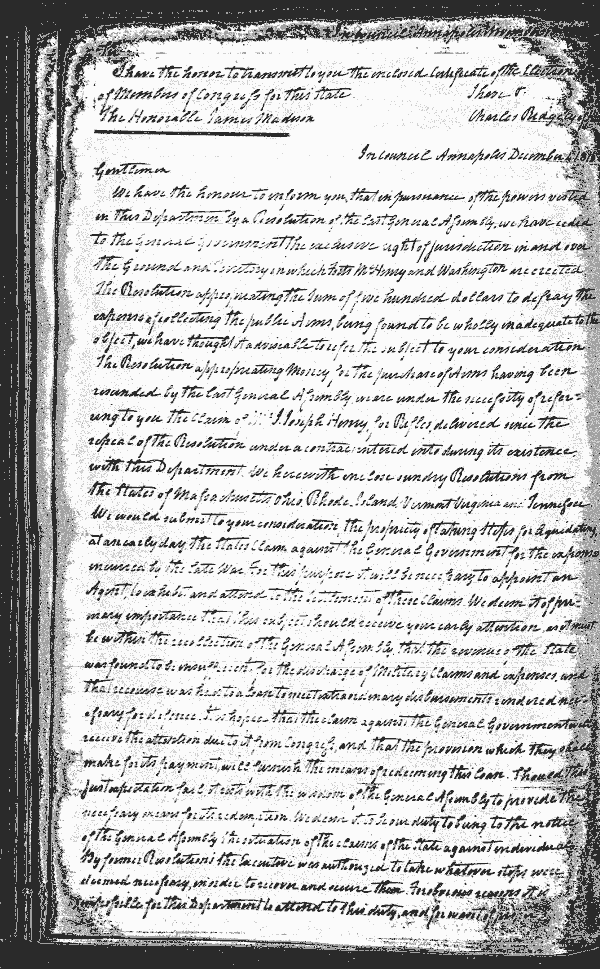 In Council Annapolis
Sir
I have the honor to transmit to you the inclosed Certificate of the Election
of Members of Congress for this State
I have &
The Honorable James Madison
Charles Ridgely of
In Council Annapolis December 1816
Gentlemen
We have the honour to inform you, that in pursuance of the powers vested
in this Department by a Resolution of the last General Assembly, we have ceded
to the General Government the exclusive right of jurisdiction in and over
the Ground and Territory on which Forts McHenry and Washington are erected
The Resolution appropriating the Sum of five hundred dollars to defray the
expense of collecting the public Arms, being found to be wholly inadequate to the
object, we have thought it advisable to refer the subject to your consideration
The Resolution appropriating Money for the purchase of Arms having been
rescinded by the last General Assembly, we are under the necessity of refer-
ring to you the Claim of Mr. J. Joseph Henry, for Rifles, delivered since the
repeal of the Resolution under a contract entered into during its existence
with this Department. We herewith enclose sundry Resolutions from
the States of Massachusetts Ohio, Rhode Island Vermont Virginia and Tennessee
We would submit to your consideration the propriety of taking steps for liquidating,
at an early day, the States Claim against the General Government for the expenses
incurred by the late War. For this purpose it will be necessary to appoint an
Agent, to exhibit and attend to the settlement of these Claims. We deem it of pri-
mary importance that this subject should receive your early attention, as it must
be within the recollection of the General Assembly, that the revenue of the State
was found to be insufficient for the discharge of Military Claims and expenses, and
that recourse was had to a loan to meet extraordinary disbursements rendered nec-
essary for defence. It is hoped that the claim against the General Government will
receive the attention due to it from Congress, and that the provision which they shall
make for its payment, will furnish the means of redeeming this loan. Should this
just expectation fail it rests with the wisdom of the General Assembly to provide the
necessary means for its redemption. We deem it to be our duty to bring to the notice
of the General Assembly the situation of the claims of the State against individuals
By former Resolutions the Executive was authorized to take whatever steps were
deemed necessary, in order to recover and secure them. For obvious reasons it is
impossible for this Department to attend to this duty, and for want of